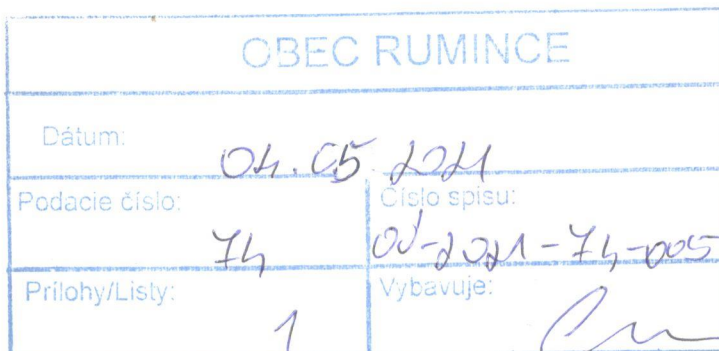 OBEC RUMINCE
Dátum: 04.05.2021
Podacie číslo: 74
Číslo spisu: OÚ-2021-74-005
Prílohy/Listy: 1
Vybavuje: